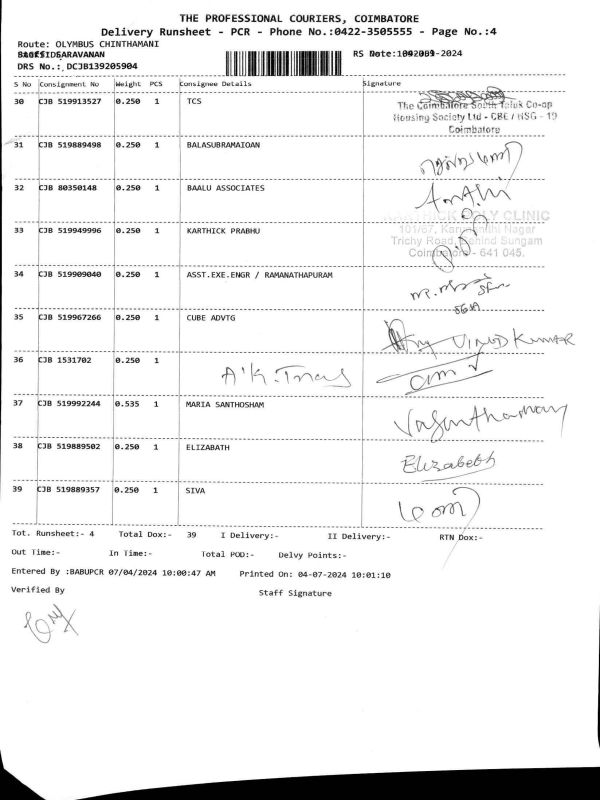 THE PROFESSIONAL COURIERS, COIMBATORE
Delivery Runsheet - PCR - Phone No.:0422-3505555 - Page No.:4
Route: OLYMBUS CHINTHAMANI
SARAVANAN
RS No
DRS No.: DCJB139205904
S No Consignment No Weight PCS Consignee Details Signature
30 CJB 519913527 0.250 1 TCS
The Coimbatore South Taluk Co-op
Housing Society Ltd - CBE / HSG - 19
Coimbatore
31 CJB 519889498 0.250 1 BALASUBRAMAIOAN
32 CJB 80350148 0.250 1 BAALU ASSOCIATES
CLINIC
33 CJB 519949996 0.250 1 KARTHICK PRABHU
101/67, Nagar
Trichy Road, Behind Sungam
Coimbatore - 641 045.
34 CJB 519909040 0.250 1 ASST.EXE.ENGR / RAMANATHAPURAM
35 CJB 519967266 0.250 1 CUBE ADVTG
VINOD KUMAR
36 CJB 1531702 0.250 1
37 CJB 519992244 0.535 1 MARIA SANTHOSHAM
38 CJB 519889502 0.250 1 ELIZABATH
Elizabeth
39 CJB 519889357 0.250 1 SIVA
Tot. Runsheet:- 4 Total Dox:- 39 I Delivery:- II Delivery:- RTN Dox:-
Out Time:- In Time:- Total POD:- Delvy Points:-
Entered By :BABUPCR 07/04/2024 10:00:47 AM Printed On: 04-07-2024 10:01:10
Verified By Staff Signature